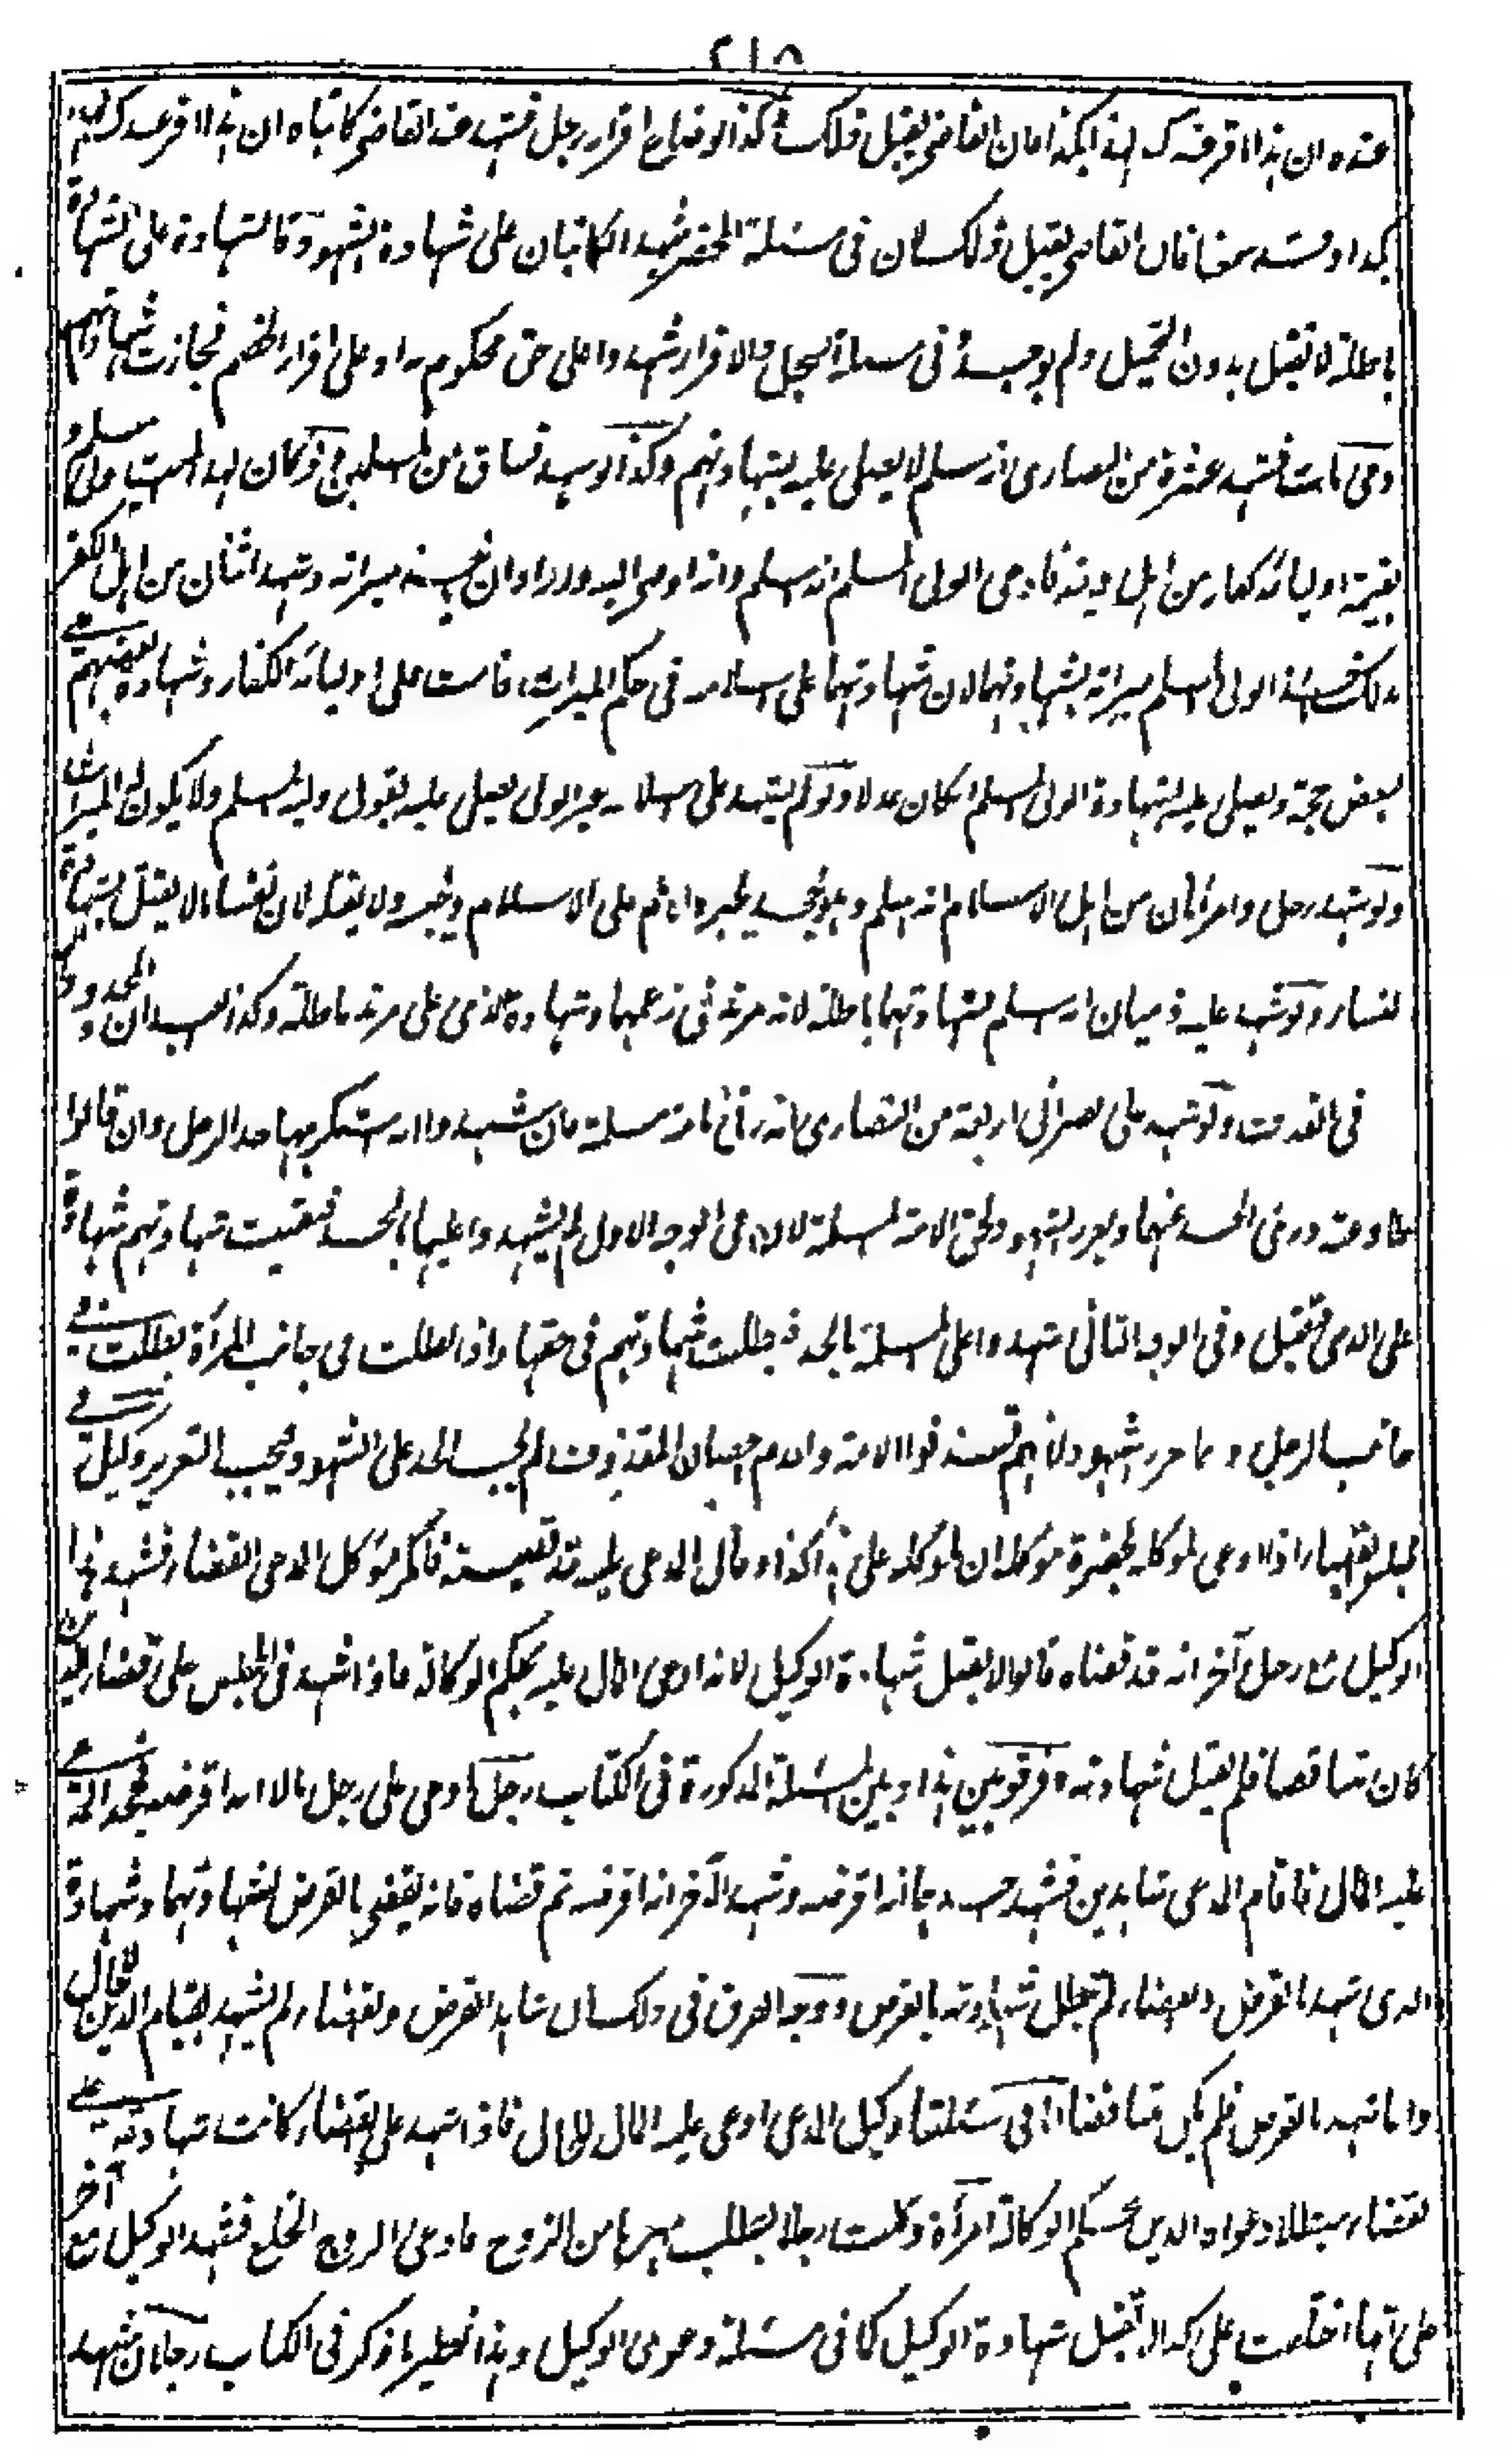 ٢١٥
عنده ان هذا اقر عنده كـ لهذا بكذا فان القاضى يقبل ذلك وكذا لو ضاع اقرار رجل فشهد عند القاضى كاتباه ان هذا اقر عندك لهذا
بكذا وسمعنا فان القاضى يقبل ذلك لان فى مسئلة المحضر شهد الكاتبان على شهادة الشهود فالشهادة على الشهادة
باطلة لا تقبل بدون التحميل ولم يوجد فى مسئلة السجل والاقرار شهدوا على حق محكوم به او على اقرار الخصم فجازت شهادتهم
ذمى مات فشهد عشرة من النصارى انه اسلم لا يصلى عليه بشهادتهم وكذا لو شهد فساق من المسلمين وكان لهذا الميت ولى مسلم و
بقية اوليائه كفار من اهل دينه فادعى الولى المسلم انه اسلم وانه اوصى اليه واراد ان ميراثه وشهد اثنان من اهل الكفر
بذلك الولى المسلم ميراثه بشهادتهما لان شهادتهما على اسلامه فى حكم الميراث قامت على اوليائه الكفار وشهادة بعضهم على
بعض حجة ويصلى عليه بشهادة الولى المسلم ان كان عدلا ولو لم يشهد على اسلامه غير الولى يصلى عليه بقول وليه المسلم ولا يكون له الميراث
ولو شهد رجل وامرأتان من اهل الاسلام انه اسلم وهو يجحد يجبر على الاسلام ويحبس ولا يقتل لان نفسا لا يقتل بشهادة
النساء ولو شهد عليه ذميان انه اسلم فشهادتهما باطلة لانه مرتد فى زعمهما وشهادة الذمى على مرتد باطلة وكذا العبدان والمحدودان
فى القذف ولو شهد على نصرانى اربعة من النصارى انه زنى بامة مسلمة فان شهدوا انه استكرهها حد الرجل وان قالوا
طاوعته درئ الحد عنهما ويعزر الشهود لحق الامة المسلمة لان فى الوجه الاول لم يشهدوا عليها بالحد فبقيت شهادتهم شهادة
على الذمى فتقبل وفى الوجه الثانى شهدوا على المسلمة بالحد فبطلت شهادتهم فى حقها واذا بطلت فى جانب المرأة بطلت فى
جانب الرجل وانما عزر الشهود لانهم قذفوا الامة ولعدم احصان المقذوف لم يجب الحد على الشهود ويجب التعزير وكيل فى
مجلس القضاء اذا ادعى لموكله بحضرة موكله ان لموكله على هذا كذا وقال المدعى عليه قد قضيته فانكر موكل المدعى القضاء فشهد هذا
الوكيل مع رجل آخر انه قد قضاه قالوا لا يقبل شهادة الوكيل لانه ادعى المال عليه بحكم الوكالة فاذا شهد فى المجلس على قضاء
كان متناقضا فلم يقبل شهادته وفرقوا بين هذا وبين المسئلة المذكورة فى الكتاب رجل ادعى على رجل مالا انه اقرضه فجحد المدعى
عليه المال فاقام المدعى شاهدين فشهد احدهما انه اقرضه وشهد الآخر انه اقرضه ثم قضاه فانه يقضى بالقرض بشهادتهما وشهادة
الذى شهد بالقرض والقضاء لم تبطل شهادته بالقرض ووجه الفرق فى ذلك ان شاهد القرض والقضاء لم يشهد بقيام الدين للحال
وانما شهد بالقرض فلم يكن متناقضا اما فى مسئلتنا وكيل المدعى ادعى عليه المال للحال فاذا شهد على القضاء كانت شهادته على
القضاء مبطلا دعواه الدين بحكم الوكالة امرأة وكلت رجلا بطلب مهرها من الزوج فادعى الزوج الخلع فشهد الوكيل مع آخر
على انها اختلعت على كذا لا تقبل شهادة الوكيل كما فى مسئلة دعوى الوكيل وهذا نظير ما ذكر فى الكتاب رجلان شهد